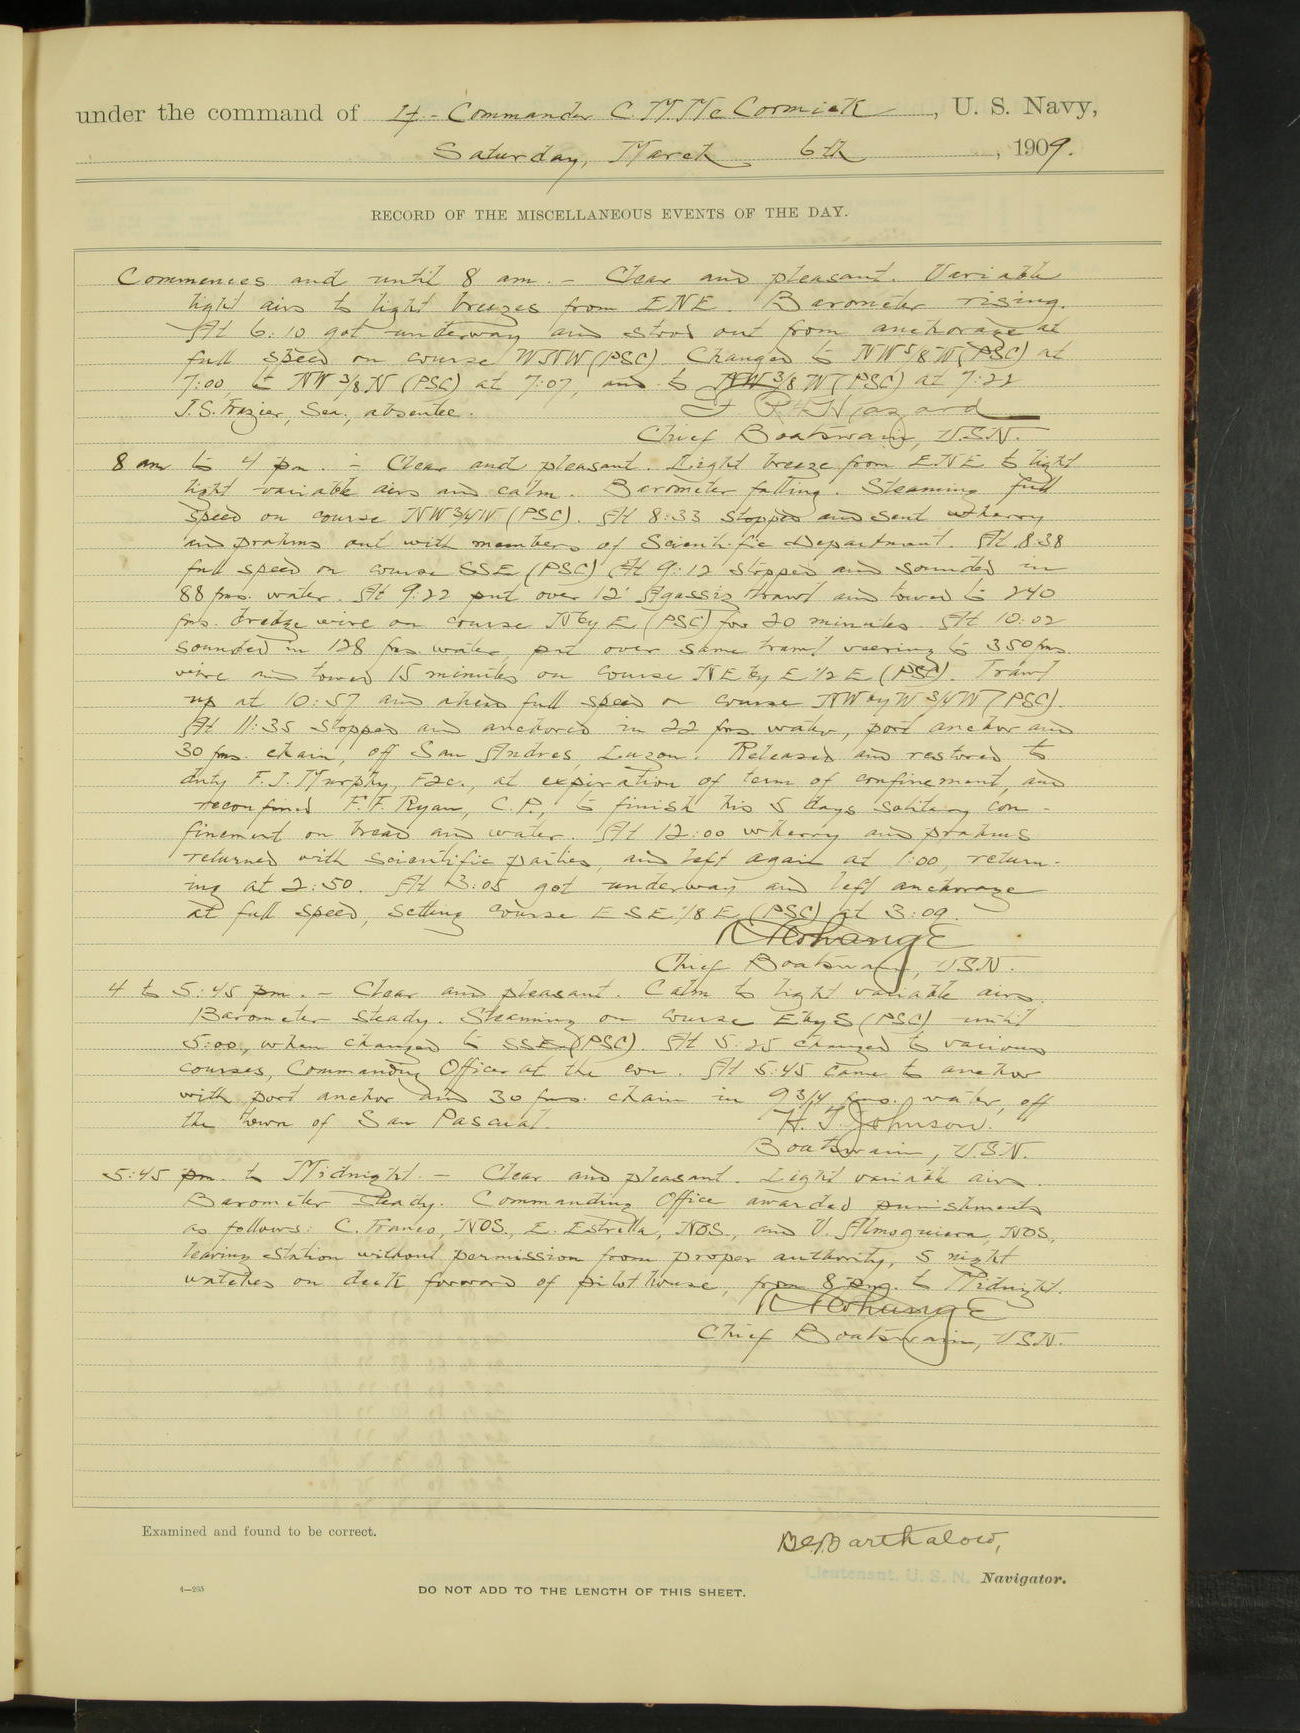 under the command of Lt-Commander C. McCormick, U. S. Navy,
Saturday, March 6th, 1909.
RECORD OF THE MISCELLANEOUS EVENTS OF THE DAY.
Commences and until 8 am. - Clear and pleasant. Variable
light airs to light breezes from ENE. Barometer rising.
At 6:10 got underway and stood out from anchorage at
full speed on course WNW (PSC) Changed to NW 5/8 W (PSC) at
7:00, to NW 3/8 N (PSC) at 7:07, and to NW 3/8 W (PSC) at 7:22
J.S. Frazier, Sea., absentee.
Hazard
Chief Boatswain, USN.
8 am to 4 pm. - Clear and pleasant. Light breeze from ENE to light
light variable airs and calm. Barometer falling. Steaming full
speed on course NW 3/4 W (PSC). At 8:33 stopped and sent wherry
and prahms out with members of Scientific Department. At 8:38
full speed on course SSE (PSC) At 9:12 stopped and sounded in
88 fms. water. At 9:22 put over 12' Agassiz trawl and towed to 240
fms. dredge wire on course N by E (PSC) for 20 minutes. At 10:02
sounded in 128 fms. water, put over same trawl veering to 350 fms.
wire and towed 15 minutes on course NE by E 1/2 E (PSC). Trawl
up at 10:57 and ahead full speed on course NW by W 3/4 W (PSC).
At 11:35 stopped and anchored in 22 fms. water, port anchor and
30 fms. chain, off San Andres, Luzon. Released and restored to
duty F.J. Murphy, F2c., at expiration of term of confinement, and
reconfined F.F. Ryan, C.P., to finish his 5 days solitary con-
finement on bread and water. At 12:00 wherry and prahms
returned with scientific parties, and left again at 1:00, return-
ing at 2:50. At 3:05 got underway and left anchorage
at full speed, setting course ESE 1/8 E (PSC) at 3:09.
Chief Boatswain, USN.
4 to 5:45 pm. - Clear and pleasant. Calm to light variable airs.
Barometer steady. Steaming on course E by S (PSC) until
5:00, when changed to SSE (PSC). At 5:25 changed to various
courses, Commanding Officer at the con. At 5:45 came to anchor
with port anchor and 30 fms. chain in 9 3/4 fms. water, off
the town of San Pascual. H. T. Johnson.
Boatswain, USN.
5:45 pm. to Midnight. - Clear and pleasant. Light variable airs.
Barometer steady. Commanding Office awarded punishments
as follows: C. Franco, NOS., E. Estrella, NOS., and V. Almoguiera, NOS,
leaving station without permission from proper authority, 5 night
watches on deck forward of pilot house, from 8 pm. to Midnight.
Chief Boatswain, USN.
Examined and found to be correct.
Barthalow,
Lieutenant, U. S. N. Navigator.
4—265
DO NOT ADD TO THE LENGTH OF THIS SHEET.